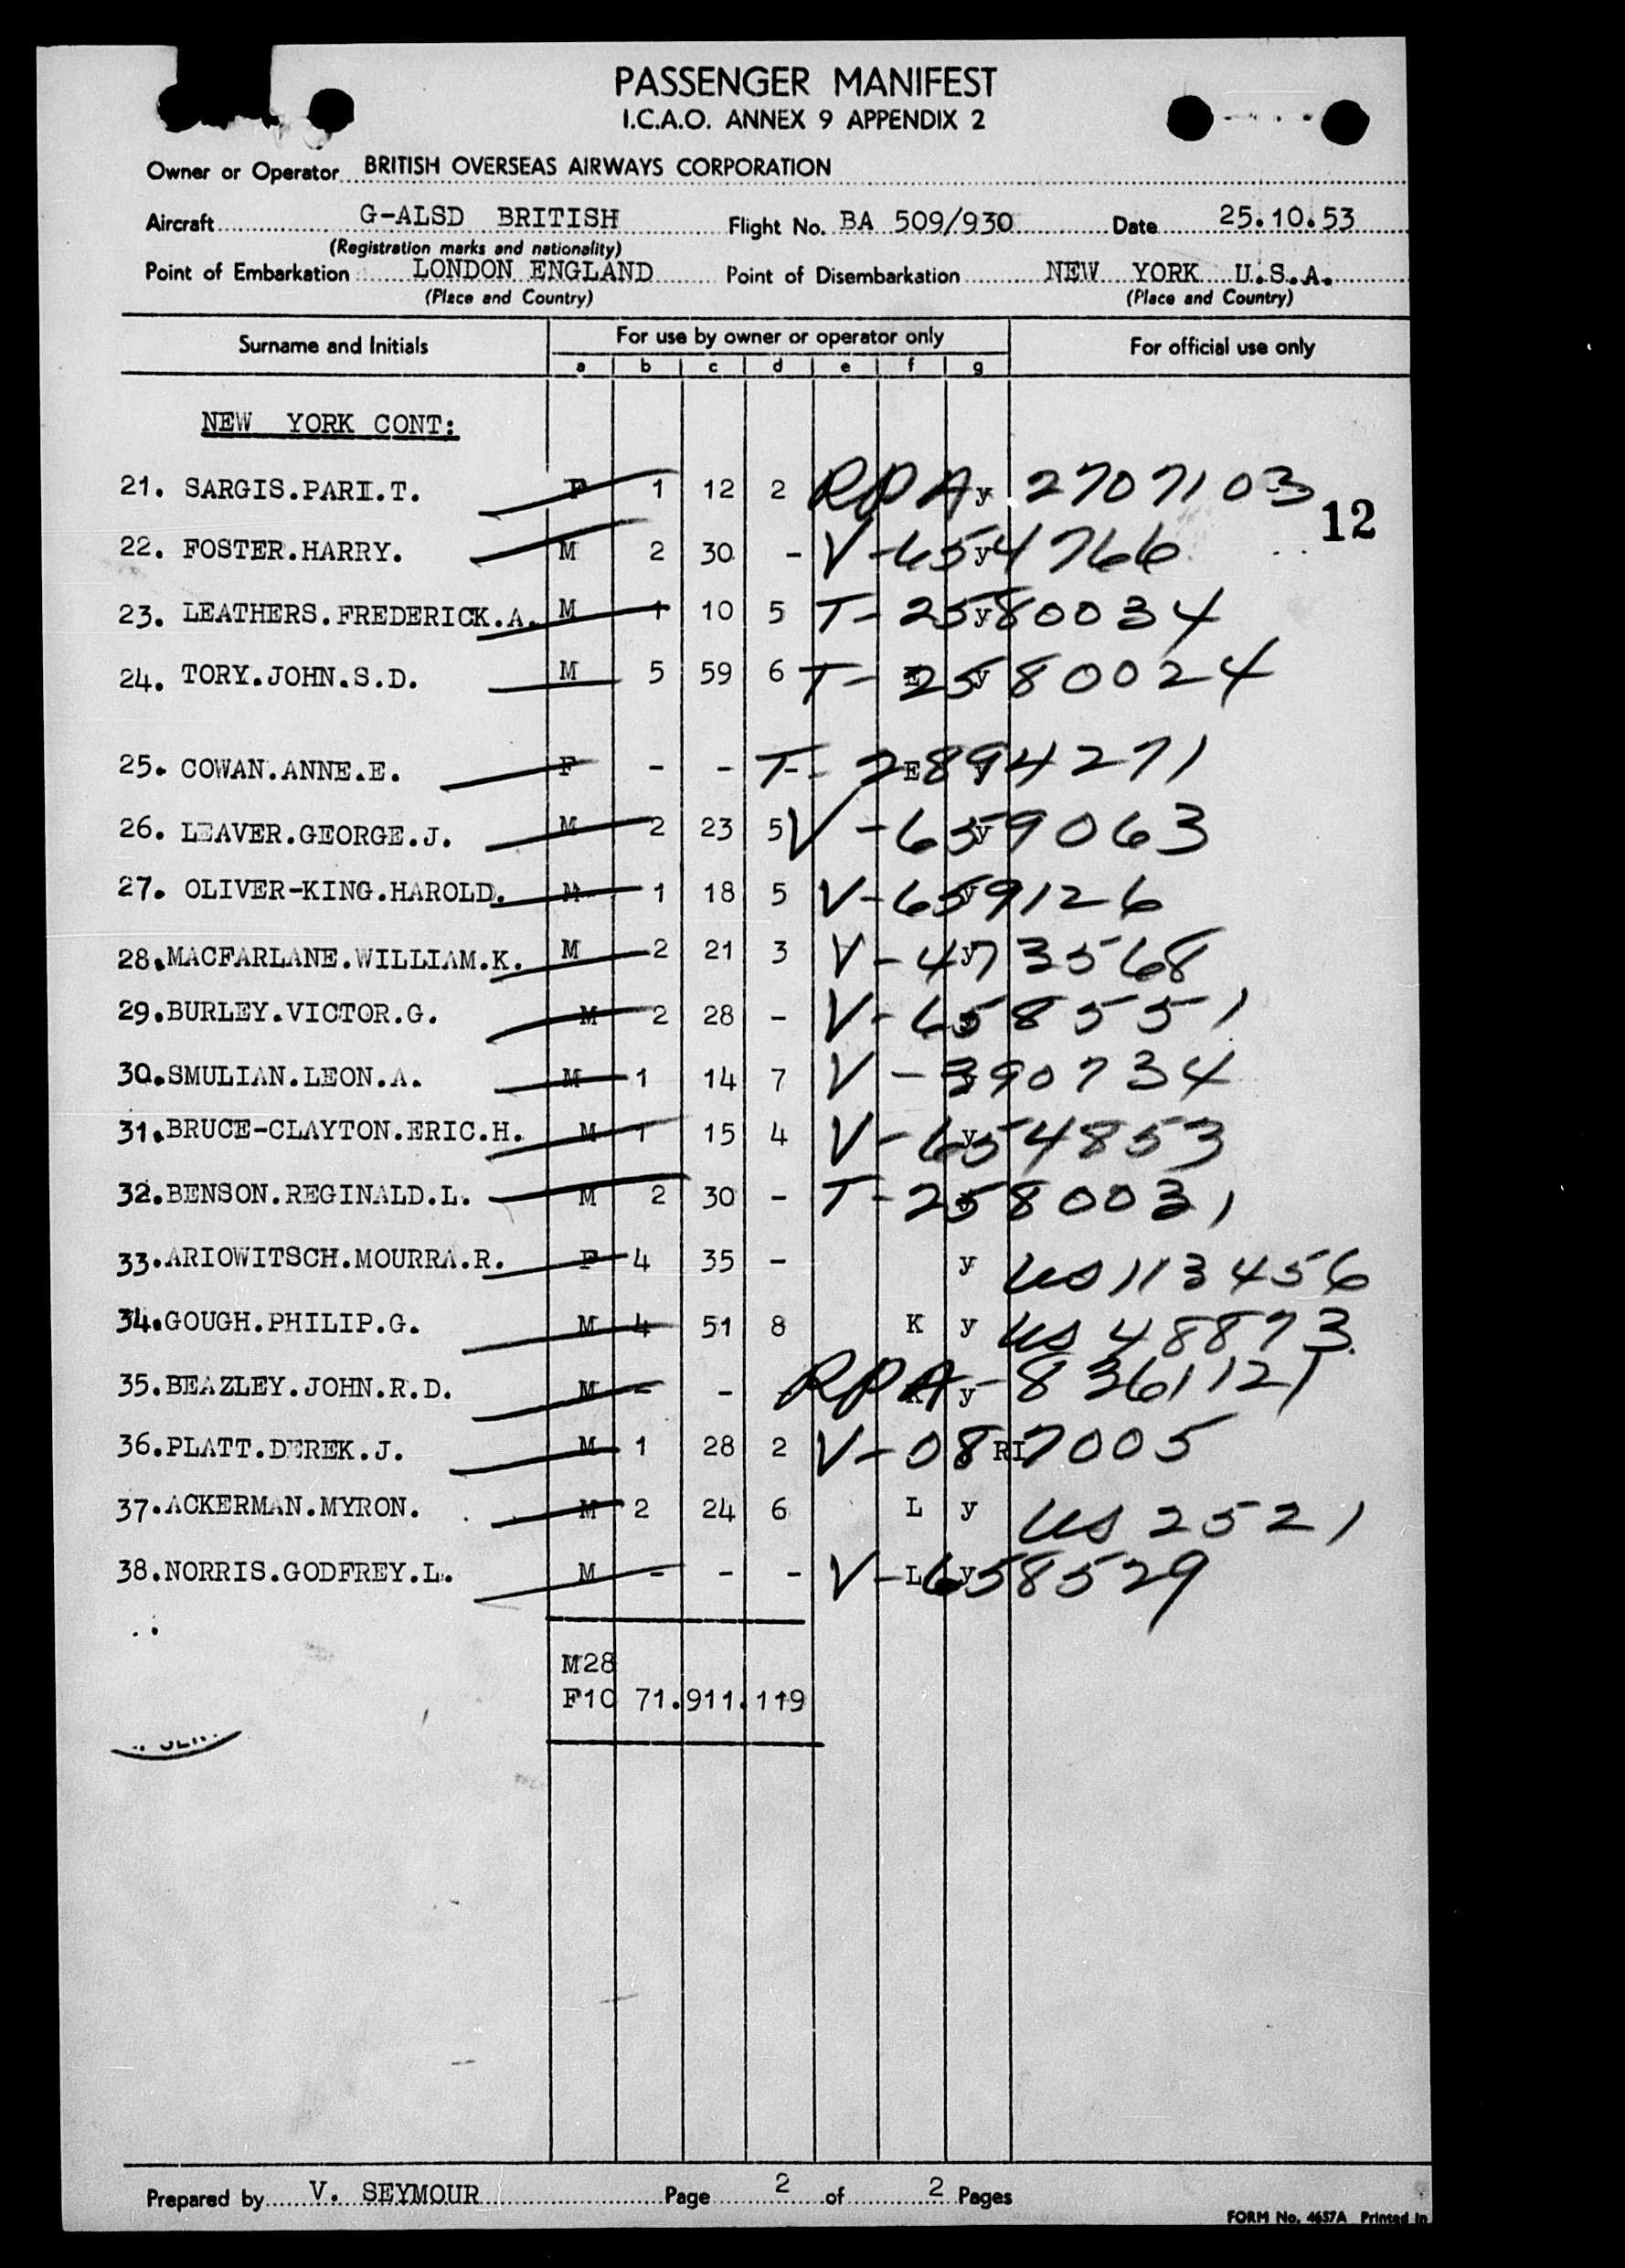 PASSENGER MANIFEST
I.C.A.O. ANNEX 9 APPENDIX 2
Owner or Operator BRITISH OVERSEAS AIRWAYS CORPORATION
Aircraft G-ALSD BRITISH Flight No. BA 509/930 Date 25.10.53
(Registration marks and nationality)
Point of Embarkation LONDON ENGLAND Point of Disembarkation NEW YORK U.S.A.
(Place and Country) (Place and Country)
Surname and Initials For use by owner or operator only For official use only
a b c d e f g
NEW YORK CONT:
21. SARGIS.PARI.T. F 1 12 2 RPA y 2707103
12
22. FOSTER.HARRY. M 2 30 - y V-6554766
23. LEATHERS.FREDERICK.A. M 1 10 5 y T-2580034
24. TORY.JOHN.S.D. M 5 59 6 E y T-2580024
25. COWAN.ANNE.E. F - - - E y T-2894271
26. LEAVER.GEORGE.J. M 2 23 5 y V-6559063
27. OLIVER-KING.HAROLD. M 1 18 5 y V-6559126
28.MACFARLANE.WILLIAM.K. M 2 21 3 y V-4773568
29.BURLEY.VICTOR.G. M 2 28 - V-658551
30.SMULIAN.LEON.A. M 1 14 7 V-390734
31.BRUCE-CLAYTON.ERIC.H. M 1 15 4 y V-654853
32.BENSON.REGINALD.L. M 2 30 - T-2580031
33.ARIOWITSCH.MOURRA.R. F 4 35 - y US 113456
34.GOUGH.PHILIP.G. M 4 51 8 K y US 48873
35.BEAZLEY.JOHN.R.D. M - - - K y RPA-8361121
36.PLATT.DEREK.J. M 1 28 2 RI V-087005
37.ACKERMAN.MYRON. M 2 24 6 L y US 2521
38.NORRIS.GODFREY.L. M - - - L y V-658529
M28
F10 71.911.119
Prepared by V. SEYMOUR Page 2 of 2 Pages
FORM No. 4657A Printed in